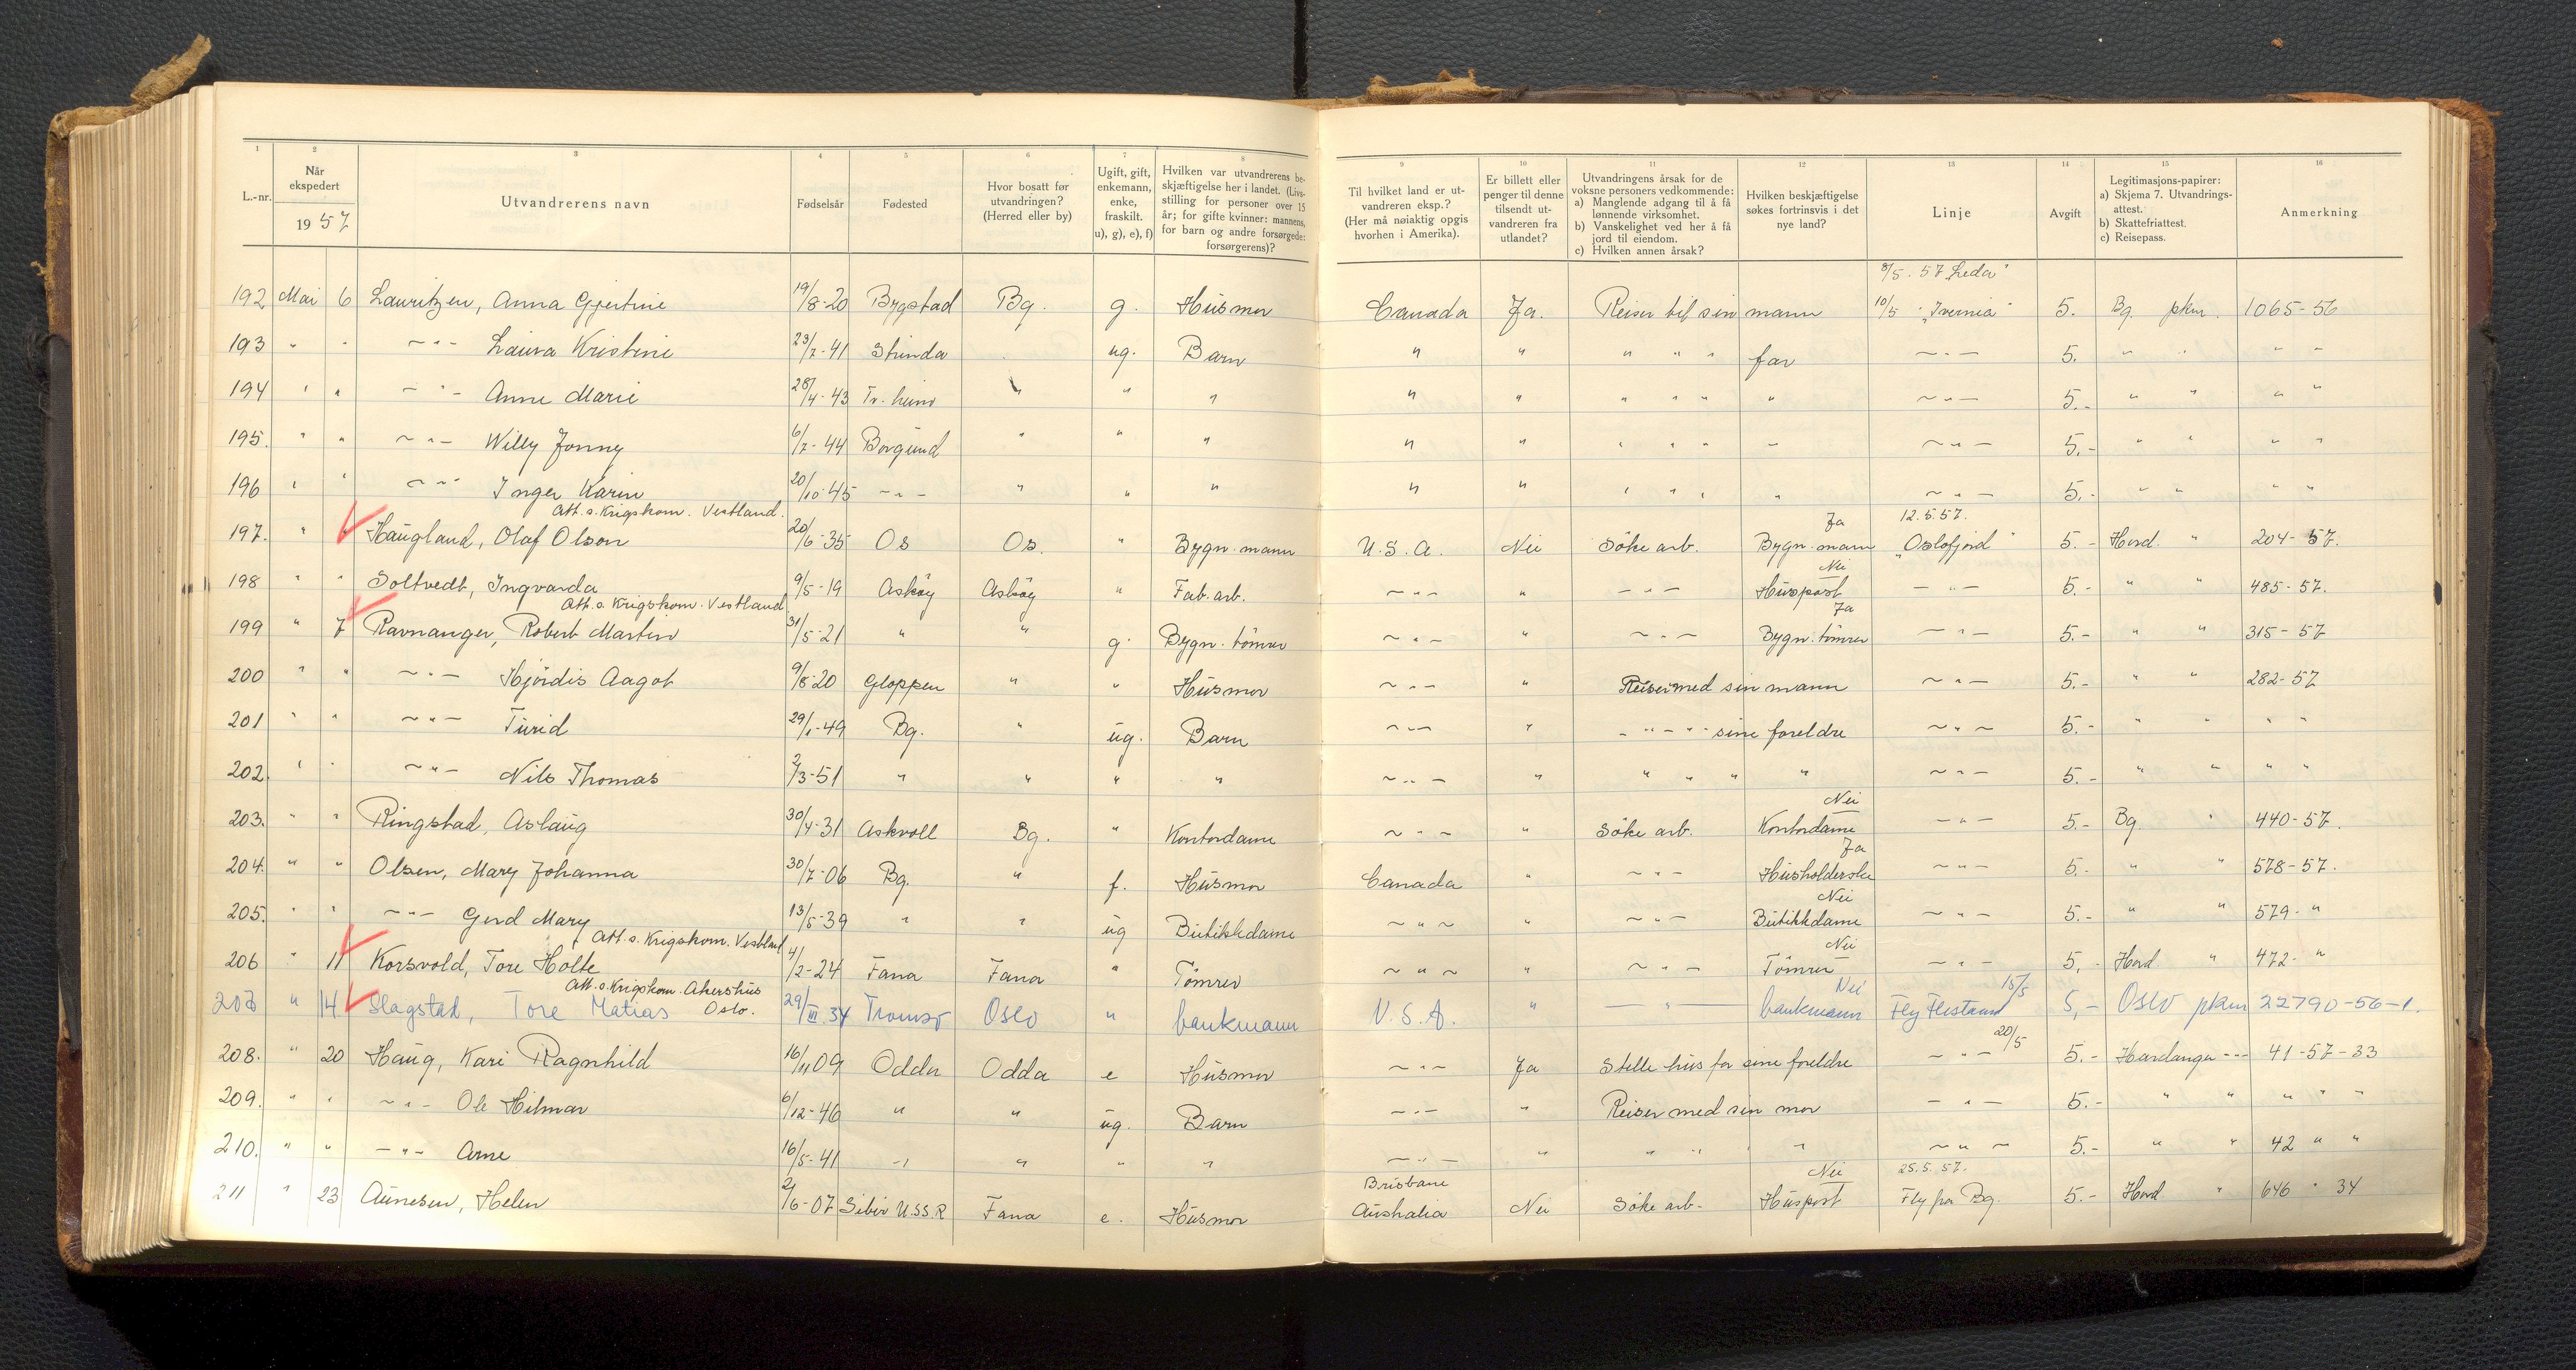 1 2 3 4 5 6 7 8 9 10 11 12 13 14 15 16
L.-nr.
Når ekspedert
19 57
Utvandrerens navn
Fødselsår
Fødested
Hvor bosatt før utvandringen? (Herred eller by)
Ugift, gift, enkemann, enke, fraskilt. u), g), e), f)
Hvilken var utvandrerens beskjæftigelse her i landet. (Livsstilling for personer over 15 år; for gifte kvinner: mannens, for barn og andre forsørgede: forsørgerens)?
Til hvilket land er utvandreren eksp.? (Her må nøiaktig opgis hvorhen i Amerika).
Er billett eller penger til denne tilsendt utvandreren fra utlandet?
Utvandringens årsak for de voksne personers vedkommende:
a) Manglende adgang til å få lønnende virksomhet.
b) Vanskelighet ved her å få jord til eiendom.
c) Hvilken annen årsak?
Hvilken beskjæftigelse søkes fortrinsvis i det nye land?
Linje
Avgift
Legitimasjons-papirer:
a) Skjema 7. Utvandringsattest.
b) Skattefriattest.
c) Reisepass.
Anmerkning
8/5. 57 "Leda"
192 Mai 6 Lauritzen, Anna Gjertine 19/8-20 Bygstad Bg. g. Husmor Canada Ja. Reiser til sin mann 10/5 "Ivernia" 5. Bg. pkm. 1065-56
193 " " ~"- Laura Kristine 23/7-41 Strinda ug. Barn " " " " " far ~"- 5. " " " "
194 " " ~"- Anne Marie 28/4-43 Tr.heim " " " " " " " " " ~"- 5.- " " " "
195. " " ~"- Willy Jonny 6/7-44 Borgund " " " " " " " " " ~"- 5.- " " " "
196 " " ~"- Inger Karin 20/10-45 ~"- " " " " " " " " " ~"- 5.- " " " "
Att. s. Krigskom. Vestland. Ja 12.5.57.
197. " " Haugland, Olaf Olson 20/6-35 Os Os. " Bygn.mann U.S.A. Nei Söke arb. Bygn.mann "Oslofjord" 5.- Hord. " 204-57.
Nei
198 " " Soltvedt, Ingvarda 9/5-19 Asköy Asköy " Fab.arb. ~"~ " -"- Huspost -"- 5.- " " 485-57.
Att. s. Krigskom. Vestland Ja
199 " 7 Ravnanger, Robert Martin 31/5-21 " " g. Bygn.tömrer ~"~ " ~"- Bygn.tömrer -"- 5.- " " 315-57
200 " " ~"- Hjördis Aagot 9/8-20 Gloppen " " Husmor ~"- " Reiser med sin mann ~"- 5.- " " 282-57
201 " " ~"- Turid 29/1-49 Bg. " ug. Barn ~"- " -"-"- sine foreldre ~"~ 5.- " " " "
202. " " ~"- Nils Thomas 2/3-51 " " " " ~"- " " " " " ~"- 5.- " " " "
Nei
203. " " Ringstad, Aslaug 30/4-31 Askvoll Bg. " Kontordame ~"- " Söke arb. Kontordame -"- 5.- Bg. " 440-57.
Ja
204. " " Olsen, Mary Johanna 30/7-06 Bg. " f. Husmor Canada " ~"- Husholderske ~"- 5.- " " 578-57.
Nei
205. " " ~"- Gerd Mary 13/5-39 " " ug Butikkdame ~"~ " ~"- Butikkdame ~"- 5.- " " 579-"
Att. s. Krigskom. Vestland Nei
206 " 11 Korsvold, Tore Holte 4/2-24 Fana Fana " Tömrer ~"~ " ~"- Tömrer -"- 5,- Hord " 472-"
Att. s. Krigskom. Akershus Nei 15/5
207 " 14 Slagstad, Tore Matias Oslo. 29/III.34 Tromsø Oslo " bankmann U.S.A. " -"- bankmann Fly Flesland 5,- Oslo pkm 22790-56-1.
20/5
208. " 20 Haug, Kari Ragnhild 16/11 09 Odda Odda e Husmor ~"~ Ja Stelle hus for sine foreldre ~"- 5.- Hardanger -"- 41-57-33
209. " " ~"- Ole Hilmar 6/12-46 " " ug. Barn ~"- " Reiser med sin mor -"- 5.- " " " " "
210. " " -"- Arne 16/5-41 -" " " " ~"- " " " " ~"~ 5.- " " 42 " "
Brisbane Nei 25.5.57.
211 " 23 Aunesen, Helen 21/6-07 Sibir U.S.S.R Fana e. Husmor Australia Nei Söke arb. Huspost Fly fra Bg. 5.- Hord. " 646 " 34